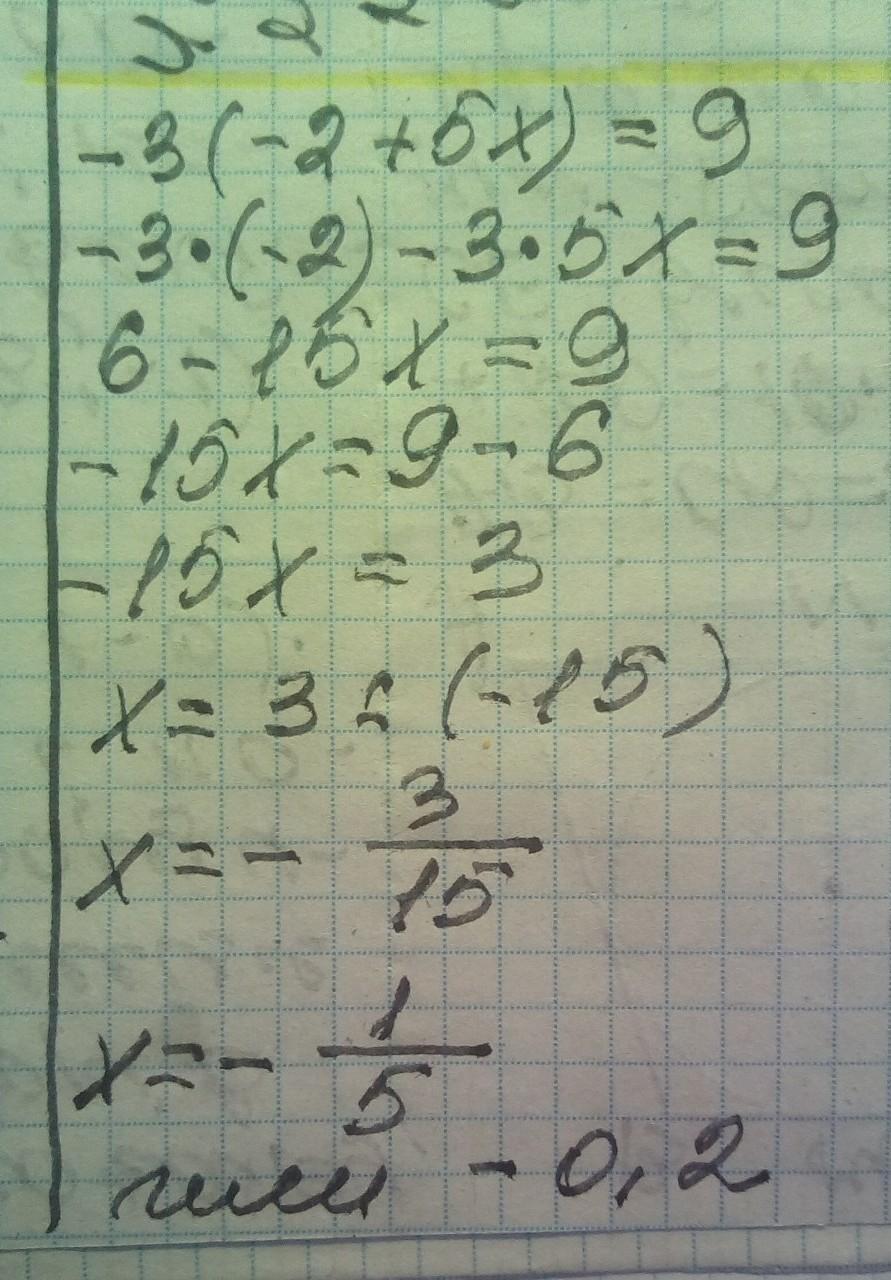 -3(-2+5x)=9
-3·(-2)-3·5x=9
6-15x=9
-15x=9-6
-15x=3
x=3:(-15)
x=-3/15
x=-1/5
или -0,2